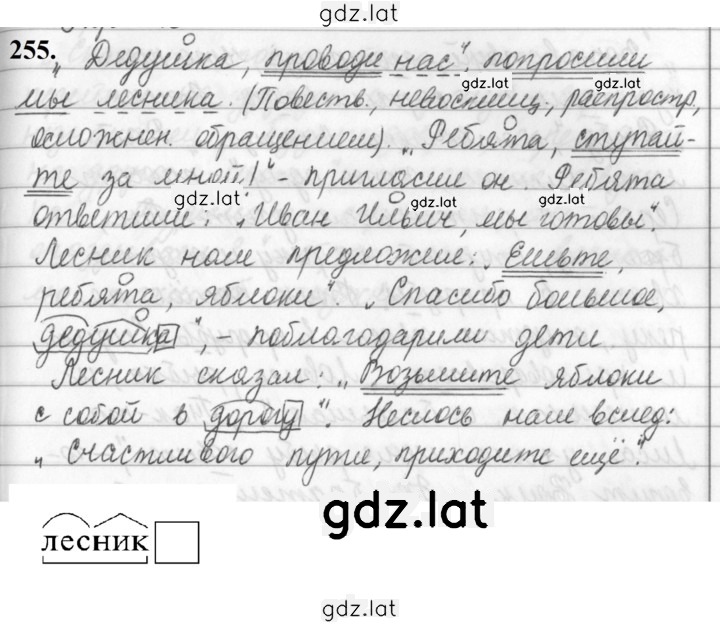 gdz.lat
255.
„Дедушка, проводи нас“, попросили
gdz.lat
gdz.lat
мы лесника. (Повеств., невосклиц., распростр,
осложнен. обращением). „Ребята, ступай-
те за мной!“ - пригласил он. Ребята
gdz.lat
gdz.lat
ответили: „Иван Ильич, мы готовы“.
Лесник нам предложил: „Ешьте,
ребята, яблоки“. „Спасибо большое,
дедушка“, - поблагодарили дети.
Лесник сказал: „Возьмите яблоки
с собой в дорогу“. Неслось нам вслед:
„Счастливого пути, приходите ещё“.
gdz.lat
лесник
gdz.lat